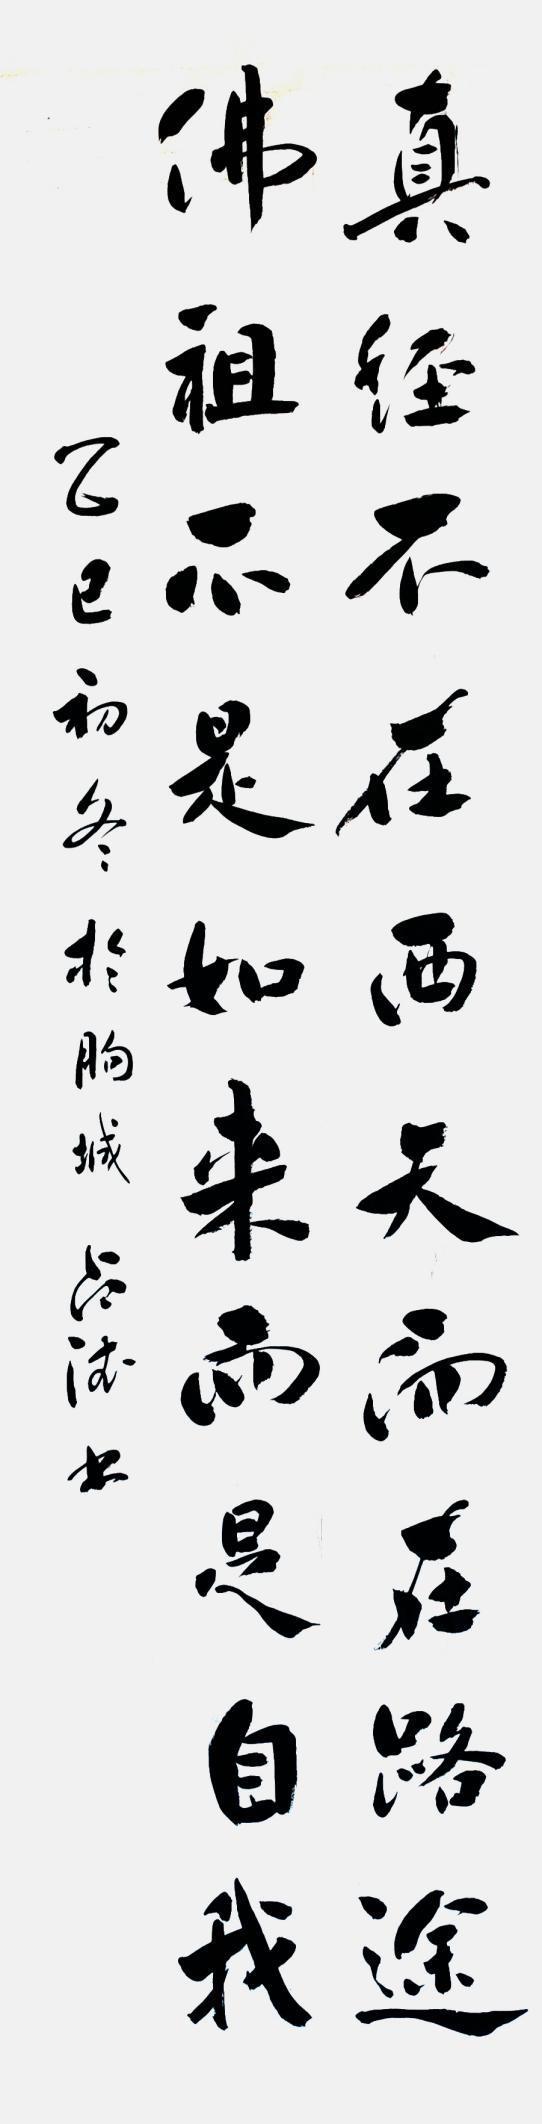 真经不在西天而在路途
佛祖不是如来而是自我
乙巳初冬於朐城 占法书